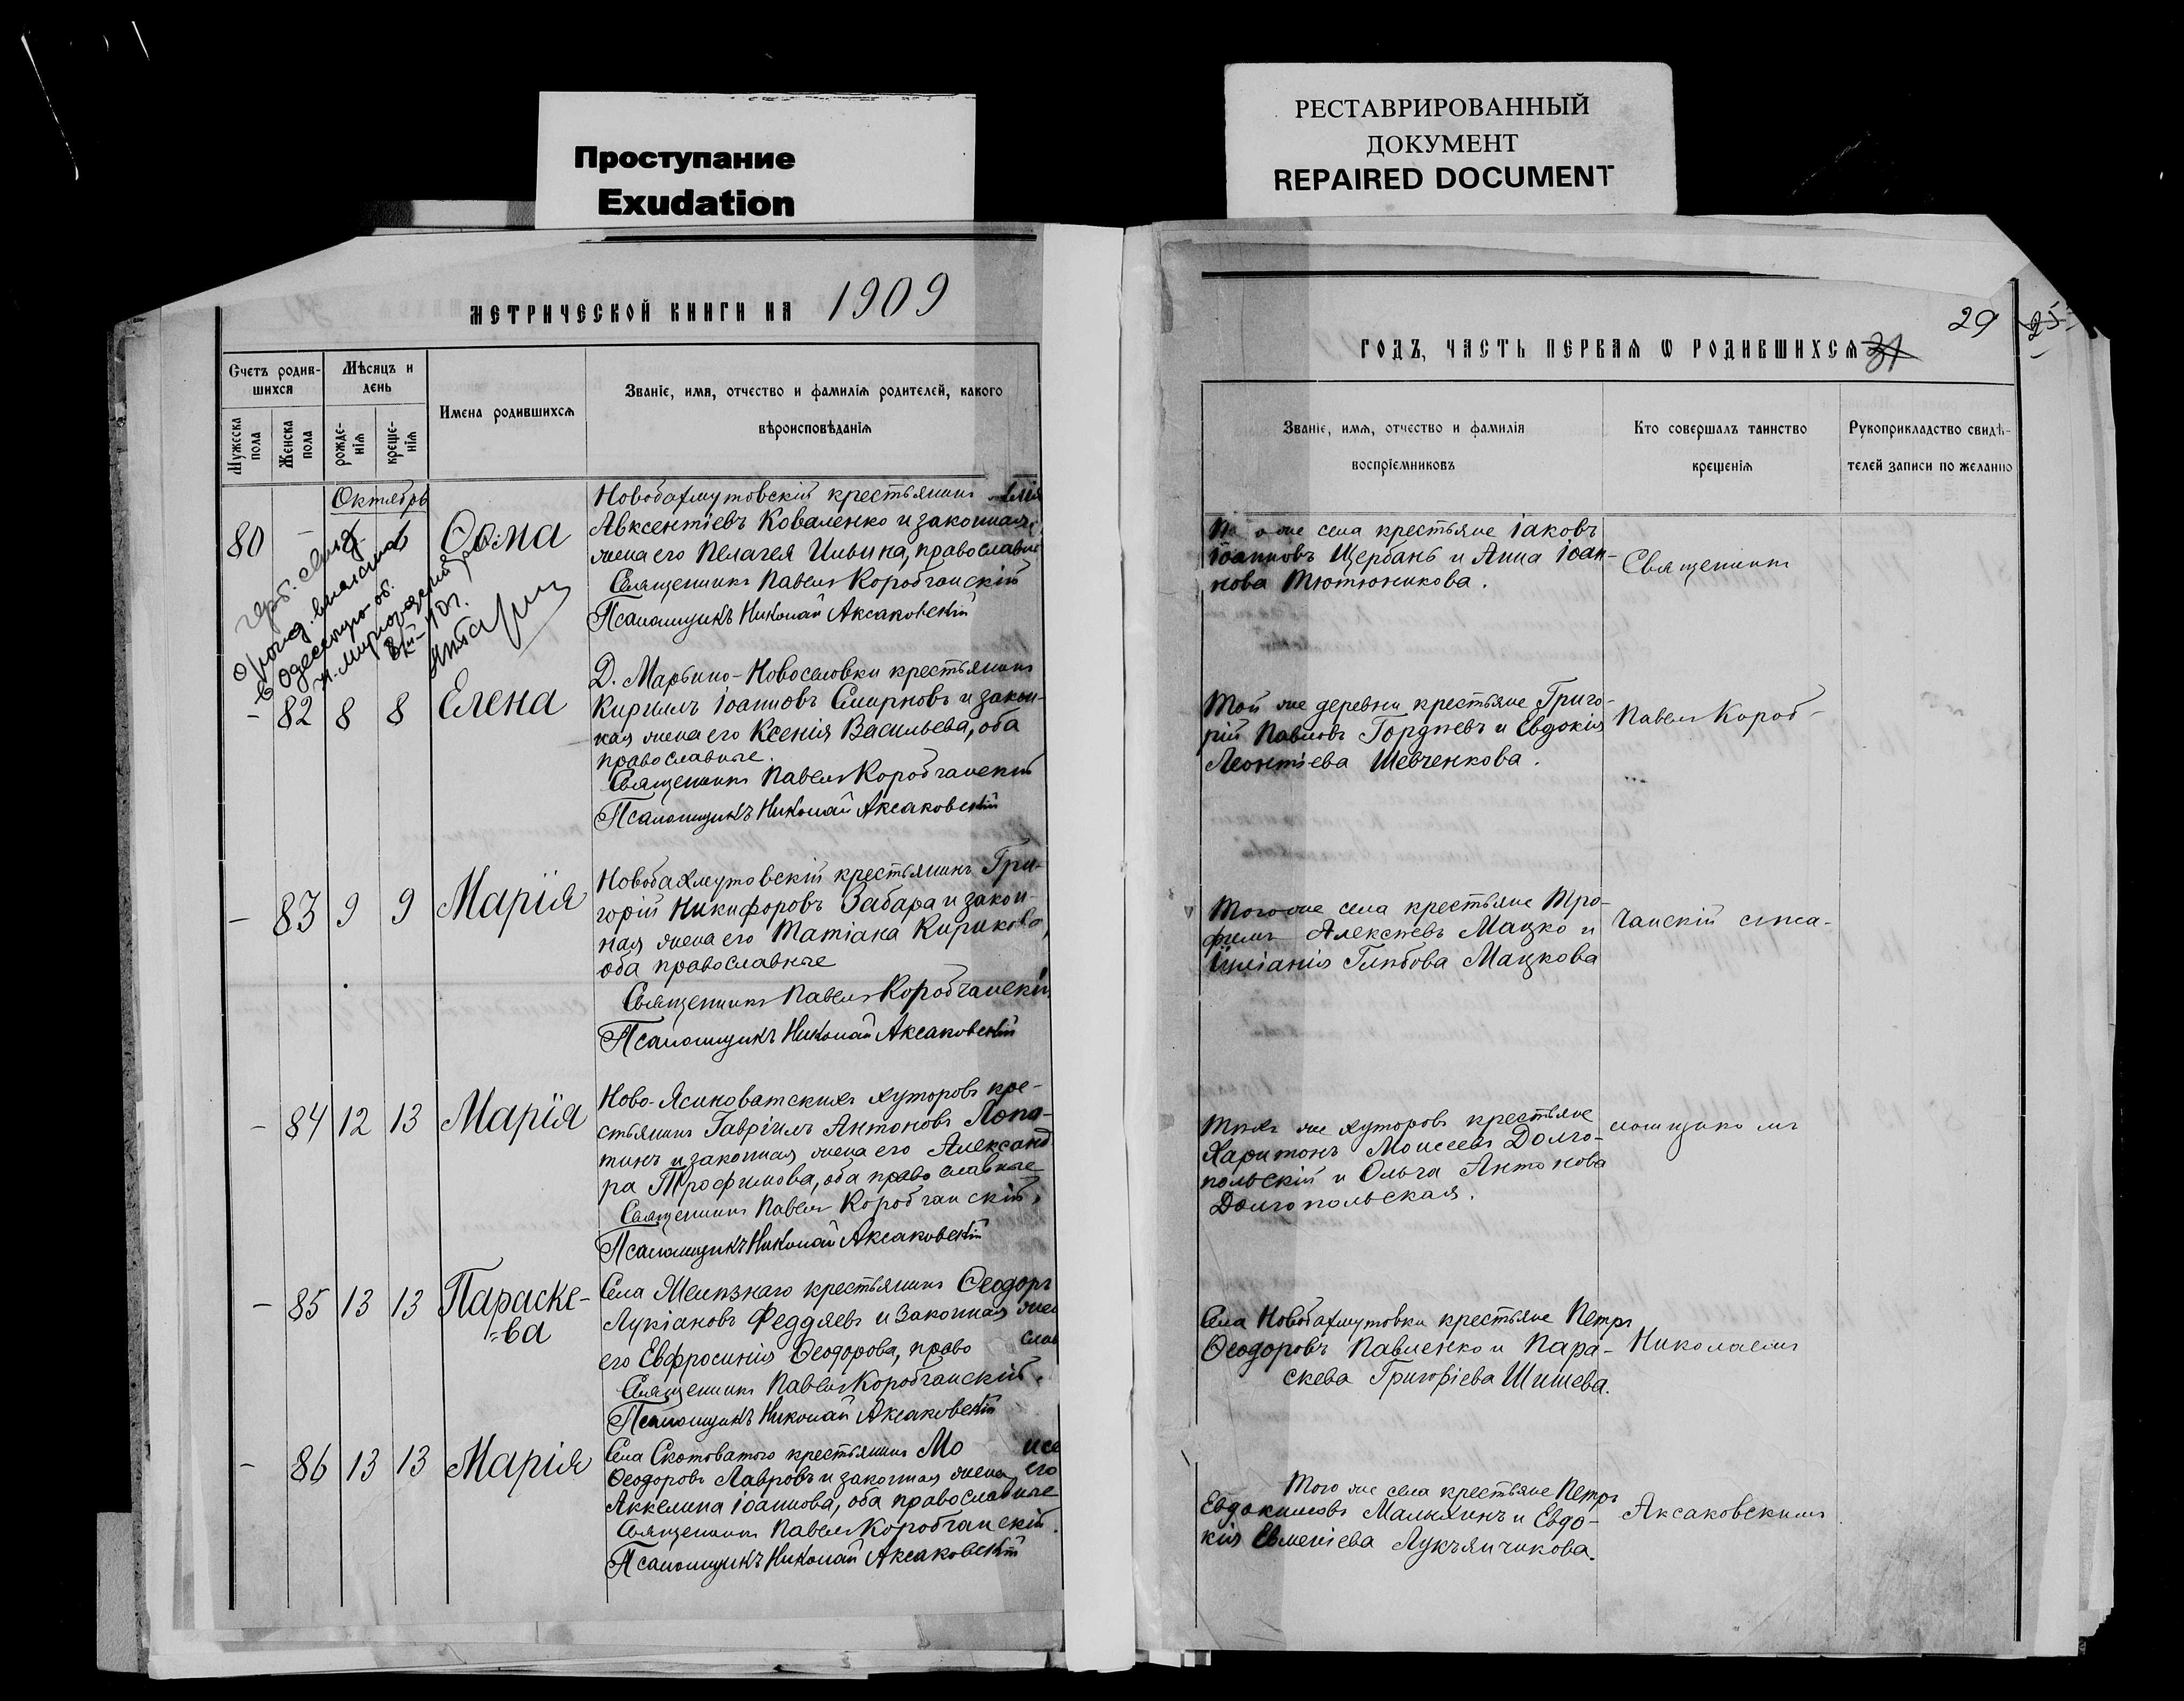 Проступание
Exudation
РЕСТАВРИРОВАННЫЙ
ДОКУМЕНТ
REPAIRED DOCUMENT
МЕТРИЧЕСКОЙ КНИГИ НА 1909
Счетъ родив-
шихся
Мѣсяцъ и
день
Мужеска
пола
Женска
пола
рожде-
нія
креще-
нія
Имена родившихся
Званіе, имя, отчество и фамилія родителей, какого
вѣроисповѣданія
Октябрь
80
-
Ѳома
Новобахмутовскій крестьянинъ
Авксентіевъ Коваленко и законная
жена его Пелагея Ильина, православн
Священникъ Павелъ Коробчанскій
Псаломщикъ Николай Аксаковскій
- 82 8 8 Елена
Д. Марьино-Новоселовки крестьянинъ
Кириллъ Іоанновъ Смирновъ и закон-
ная жена его Ксенія Васильева, оба
православные.
Священникъ Павелъ Коробчанскій
Псаломщикъ Николай Аксаковскій
- 83 9 9 Марія
Новобахмутовскій крестьянинъ Гри-
горій Никифоровъ Забара и закон-
ная жена его Татіана Кирикова,
оба православные
Священникъ Павелъ Коробчанскій
Псаломщикъ Николай Аксаковскій
- 84 12 13 Марія
Ново-Ясиноватскихъ хуторовъ кре-
стьянинъ Гавріилъ Антоновъ Лопа-
тинъ и законная жена его Александ
ра Трофимова, оба православные
Священникъ Павелъ Коробчанскій
Псаломщикъ Николай Аксаковскій
- 85 13 13 Параске-
ва
Села Желѣзнаго крестьянинъ Ѳеодоръ
Лукіановъ Феддяевъ и законная жен
его Евфросинія Ѳеодорова, православ
Священникъ Павелъ Коробчанскій.
Псаломщикъ Николай Аксаковскій
- 86 13 13 Марія
Села Скотоватого крестьянинъ Моисе
Ѳеодоровъ Лавровъ и законная жена его
Аккелина Іоаннова, оба православные
Священникъ Павелъ Коробчанскій.
Псаломщикъ Николай Аксаковскій
29 25
ГОДЪ, ЧАСТЬ ПЕРВАЯ Ѡ РОДИВШИХСЯ 31
Званіе, имя, отчество и фамилія
воспріемниковъ
Кто совершалъ таинство
крещенія
Рукоприкладство свидѣ-
телей записи по желанію
села крестьяне Іаковъ
Іоанновъ Щербань и Анна Іоан-
нова Тютюникова.
Священникъ
Той же деревни крестьяне Григо-
рій Павловъ Гордѣевъ и Евдокія
Леонтіева Шевченкова.
Павелъ Короб-
Того же села крестьяне Тро-
фимъ Алексѣевъ Мацко и
Іуліанія Глѣбова Мацкова
чанскій съ пса-
Тѣхъ же хуторовъ крестьяне
Харитонъ Моисеевъ Долго-
польскій и Ольга Антонова
Долгопольская.
ломщикомъ
Села Новобахмутовки крестьяне Петръ
Ѳеодоровъ Павленко и Пара-
скева Григоріева Шишева.
Николаемъ
Того же села крестьяне Петръ
Евдокимовъ Малыхинъ и Евдо-
кія Евменіева Лукъянчикова.
Аксаковскимъ